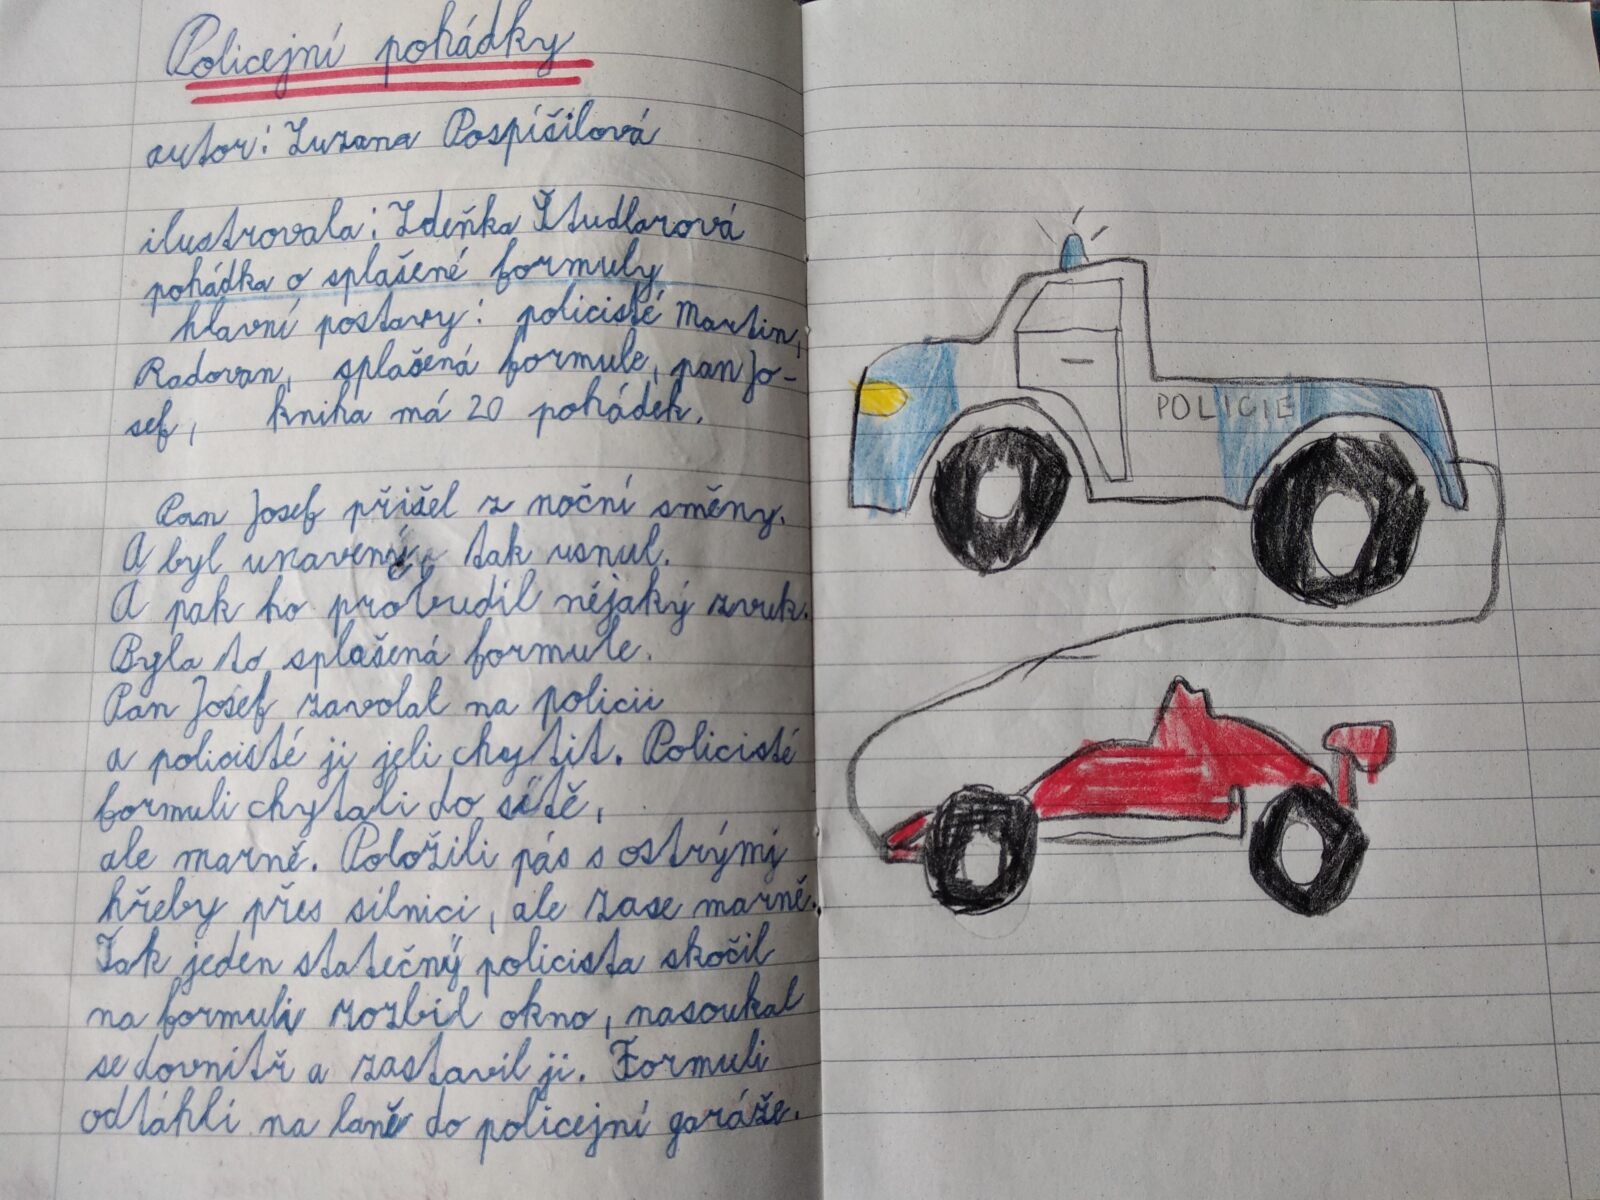 Policejní pohádky
autor: Zuzana Pospíšilová
ilustrovala: Zdeňka Študlarová
pohádka o splašené formuly
hlavní postavy: policisté Martin,
Radovan, splašená formule, pan Jo-
sef, kniha má 20 pohádek.
Pan Josef přišel z noční směny.
A byl unavený, tak usnul.
A pak ho probudil nějaký zvuk.
Byla to splašená formule.
Pan Josef zavolal na policii
a policisté ji jeli chytit. Policisté
formuli chytali do sítě,
ale marně. Položili pás s ostrými
hřeby přes silnici, ale zase marně.
Tak jeden statečný policista skočil
na formuli rozbil okno, nasoukal
se dovnitř a zastavil ji. Formuli
odtáhli na laně do policejní garáže.
POLICIE